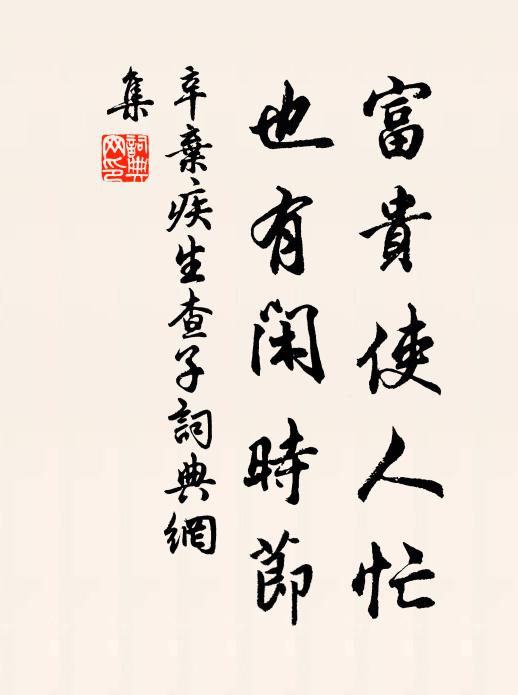 富貴使人忙
也有閑時節
辛棄疾生查子詞典網
集
詞典網印